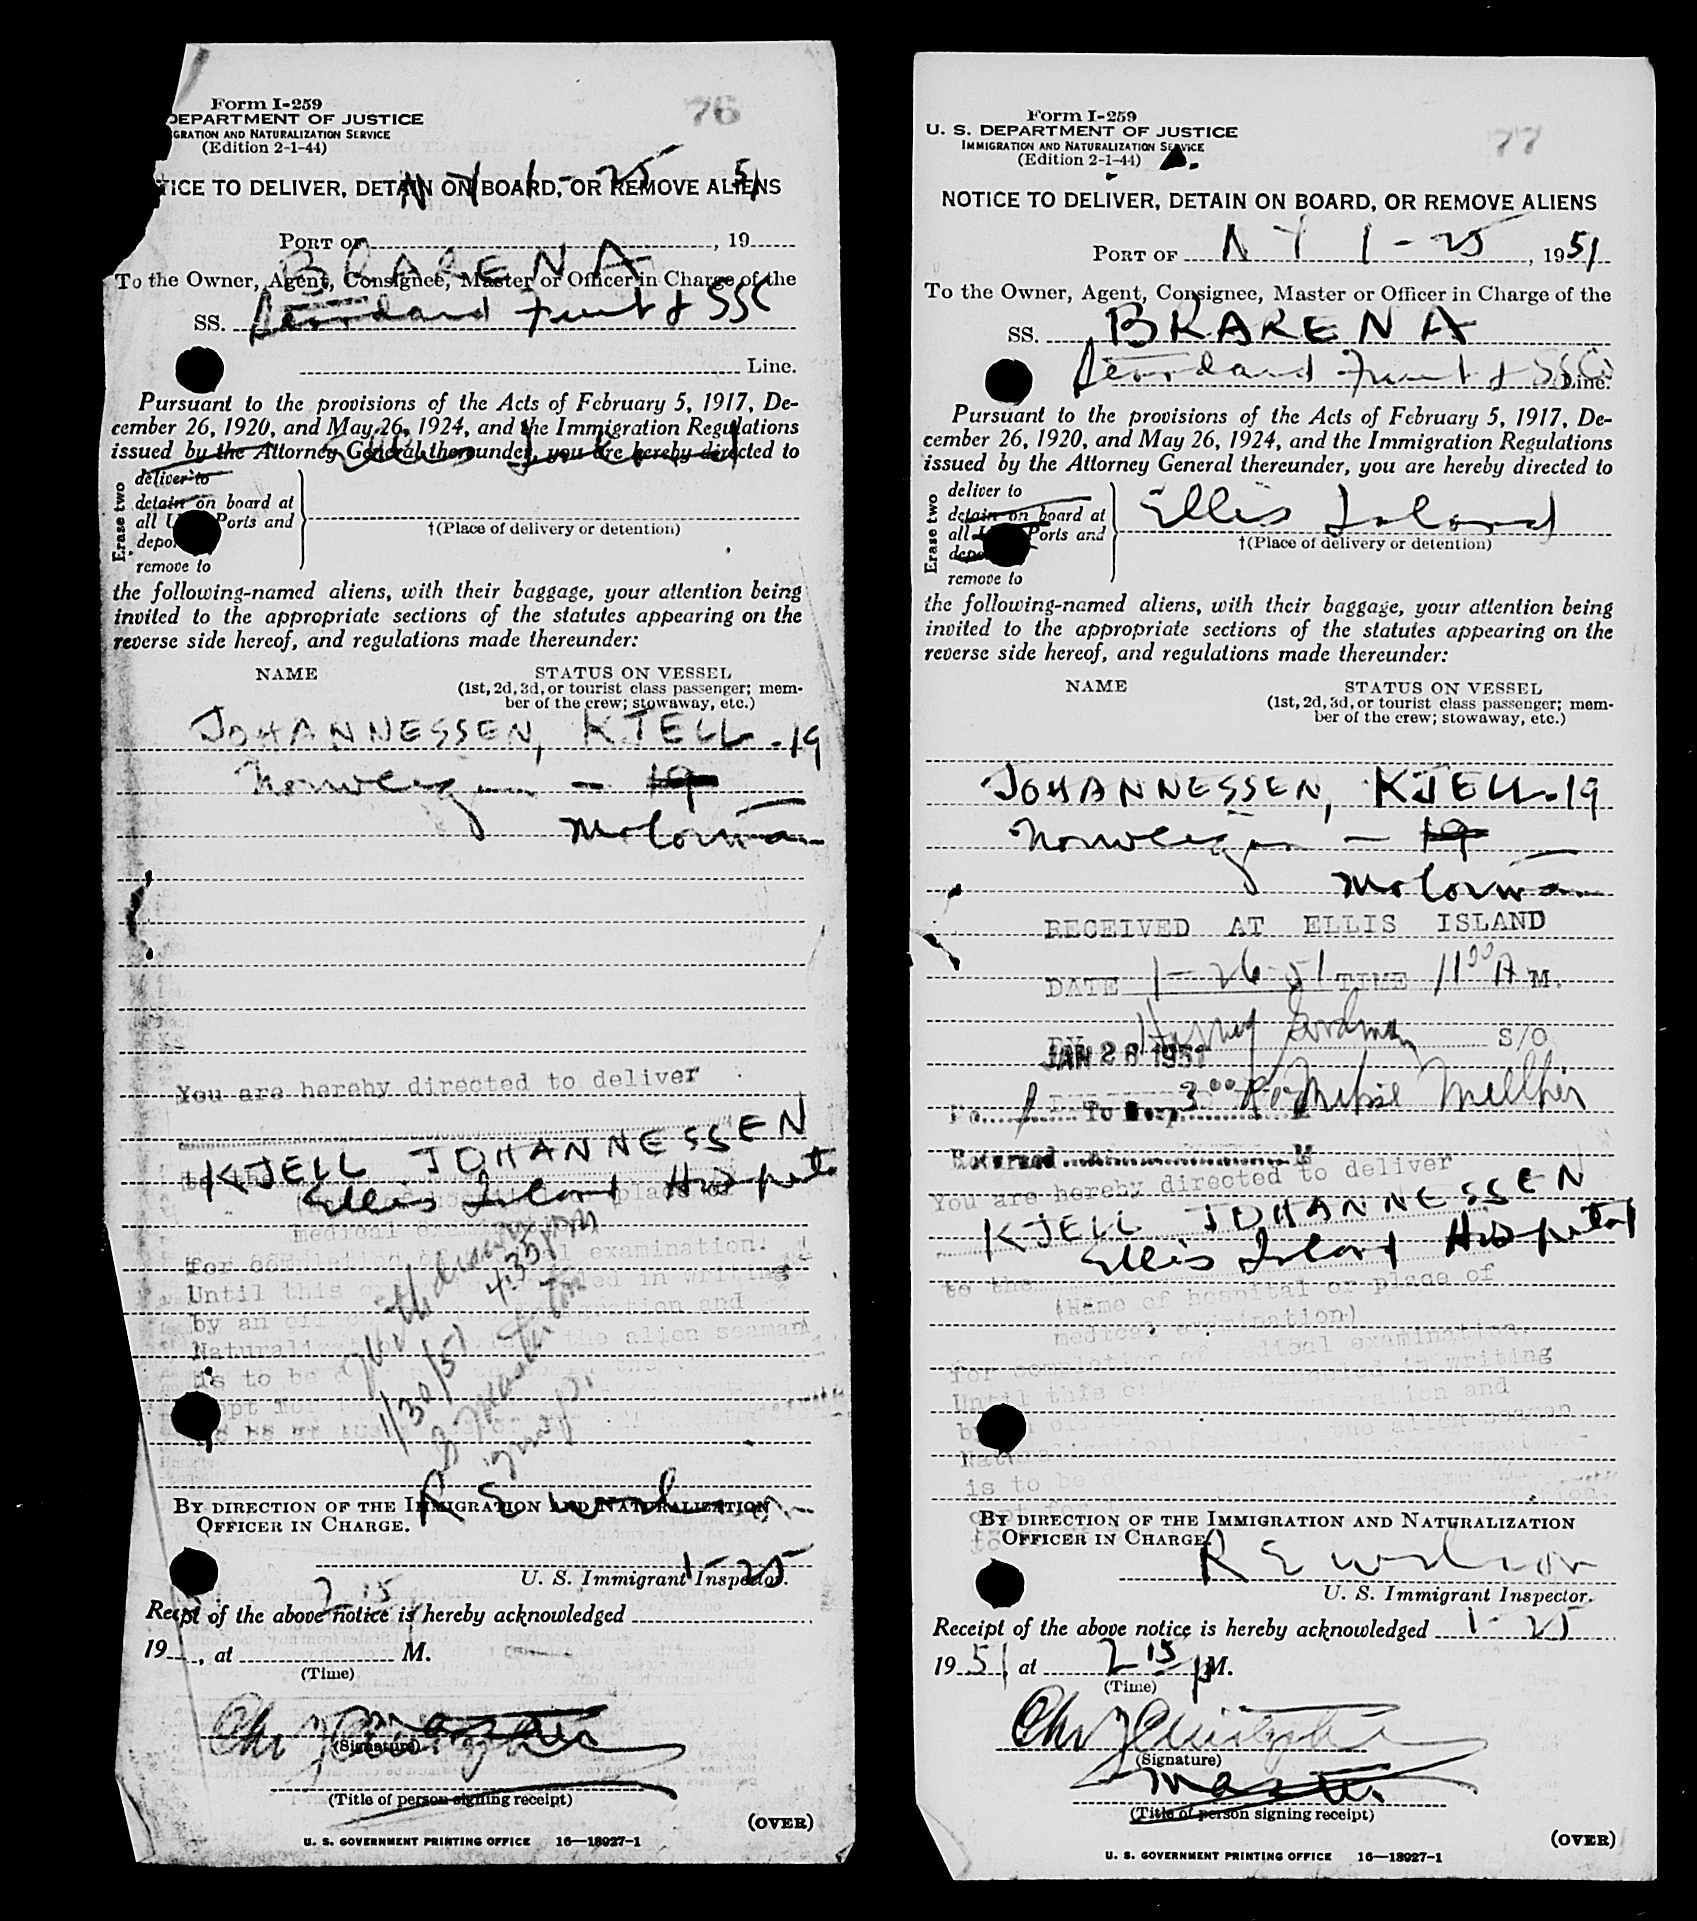 Form I-259
DEPARTMENT OF JUSTICE
GRATION AND NATURALIZATION SERVICE
(Edition 2-1-44)
76
N Y 1-25 51
TICE TO DELIVER, DETAIN ON BOARD, OR REMOVE ALIENS
PORT OF , 19
BRARENA
To the Owner, Agent, Consignee, Master or Officer in Charge of the
SS. Standard Fruit & SSC
Line.
Pursuant to the provisions of the Acts of February 5, 1917, De-
cember 26, 1920, and May 26, 1924, and the Immigration Regulations
issued by the Attorney General thereunder, you are hereby directed to
Ellis Island
Erase two
deliver to
detain on board at
all U Ports and
depor
remove to
†(Place of delivery or detention)
the following-named aliens, with their baggage, your attention being
invited to the appropriate sections of the statutes appearing on the
reverse side hereof, and regulations made thereunder:
NAME STATUS ON VESSEL
(1st, 2d, 3d, or tourist class passenger; mem-
ber of the crew; stowaway, etc.)
JOHANNESSEN, KJELL - 19
Norwegian - 19
Motorman
You are hereby directed to deliver
KJELL JOHANNESSEN
to the Ellis Island Hospital
place of
medical
for completion of examination.
Until this in writing
by an and
the alien seaman
is to be
4:35 PM
1/30/51
R E Wilson
BY DIRECTION OF THE IMMIGRATION AND NATURALIZATION
OFFICER IN CHARGE.
1-25
U. S. Immigrant Inspector.
2 15
Receipt of the above notice is hereby acknowledged
19 , at M.
(Time)
Chr
Master
(Signature)
(Title of person signing receipt)
(OVER)
U. S. GOVERNMENT PRINTING OFFICE 16—18927-1
Form I-259
U. S. DEPARTMENT OF JUSTICE
IMMIGRATION AND NATURALIZATION SERVICE
(Edition 2-1-44)
77
NOTICE TO DELIVER, DETAIN ON BOARD, OR REMOVE ALIENS
PORT OF N Y 1-25, 1951
To the Owner, Agent, Consignee, Master or Officer in Charge of the
SS. BRARENA
Standard Fruit & SSCo Line.
Pursuant to the provisions of the Acts of February 5, 1917, De-
cember 26, 1920, and May 26, 1924, and the Immigration Regulations
issued by the Attorney General thereunder, you are hereby directed to
Erase two
deliver to
detain on board at
all Ports and
remove to
Ellis Island
†(Place of delivery or detention)
the following-named aliens, with their baggage, your attention being
invited to the appropriate sections of the statutes appearing on the
reverse side hereof, and regulations made thereunder:
NAME STATUS ON VESSEL
(1st, 2d, 3d, or tourist class passenger; mem-
ber of the crew; stowaway, etc.)
JOHANNESSEN, KJELL - 19
Norwegian - 19
Motorman
RECEIVED AT ELLIS ISLAND
DATE 1-26-51 TIME 11 00 A M.
BY S/O
JAN 26 1951
No. 1 To Hosp. 3 00
Returned M
You are hereby directed to deliver
KJELL JOHANNESSEN
Ellis Island Hospital
to the
(Name of hospital or place of
medical examination)
for completion of medical examination.
Until this in writing
by and
the alien seaman
is to be
BY DIRECTION OF THE IMMIGRATION AND NATURALIZATION
OFFICER IN CHARGE.
R E Wilson
U. S. Immigrant Inspector.
Receipt of the above notice is hereby acknowledged 1-25
1951 at 2 15 P M.
(Time)
Chr
(Signature)
Master
(Title of person signing receipt)
(OVER)
U. S. GOVERNMENT PRINTING OFFICE 16—18927-1